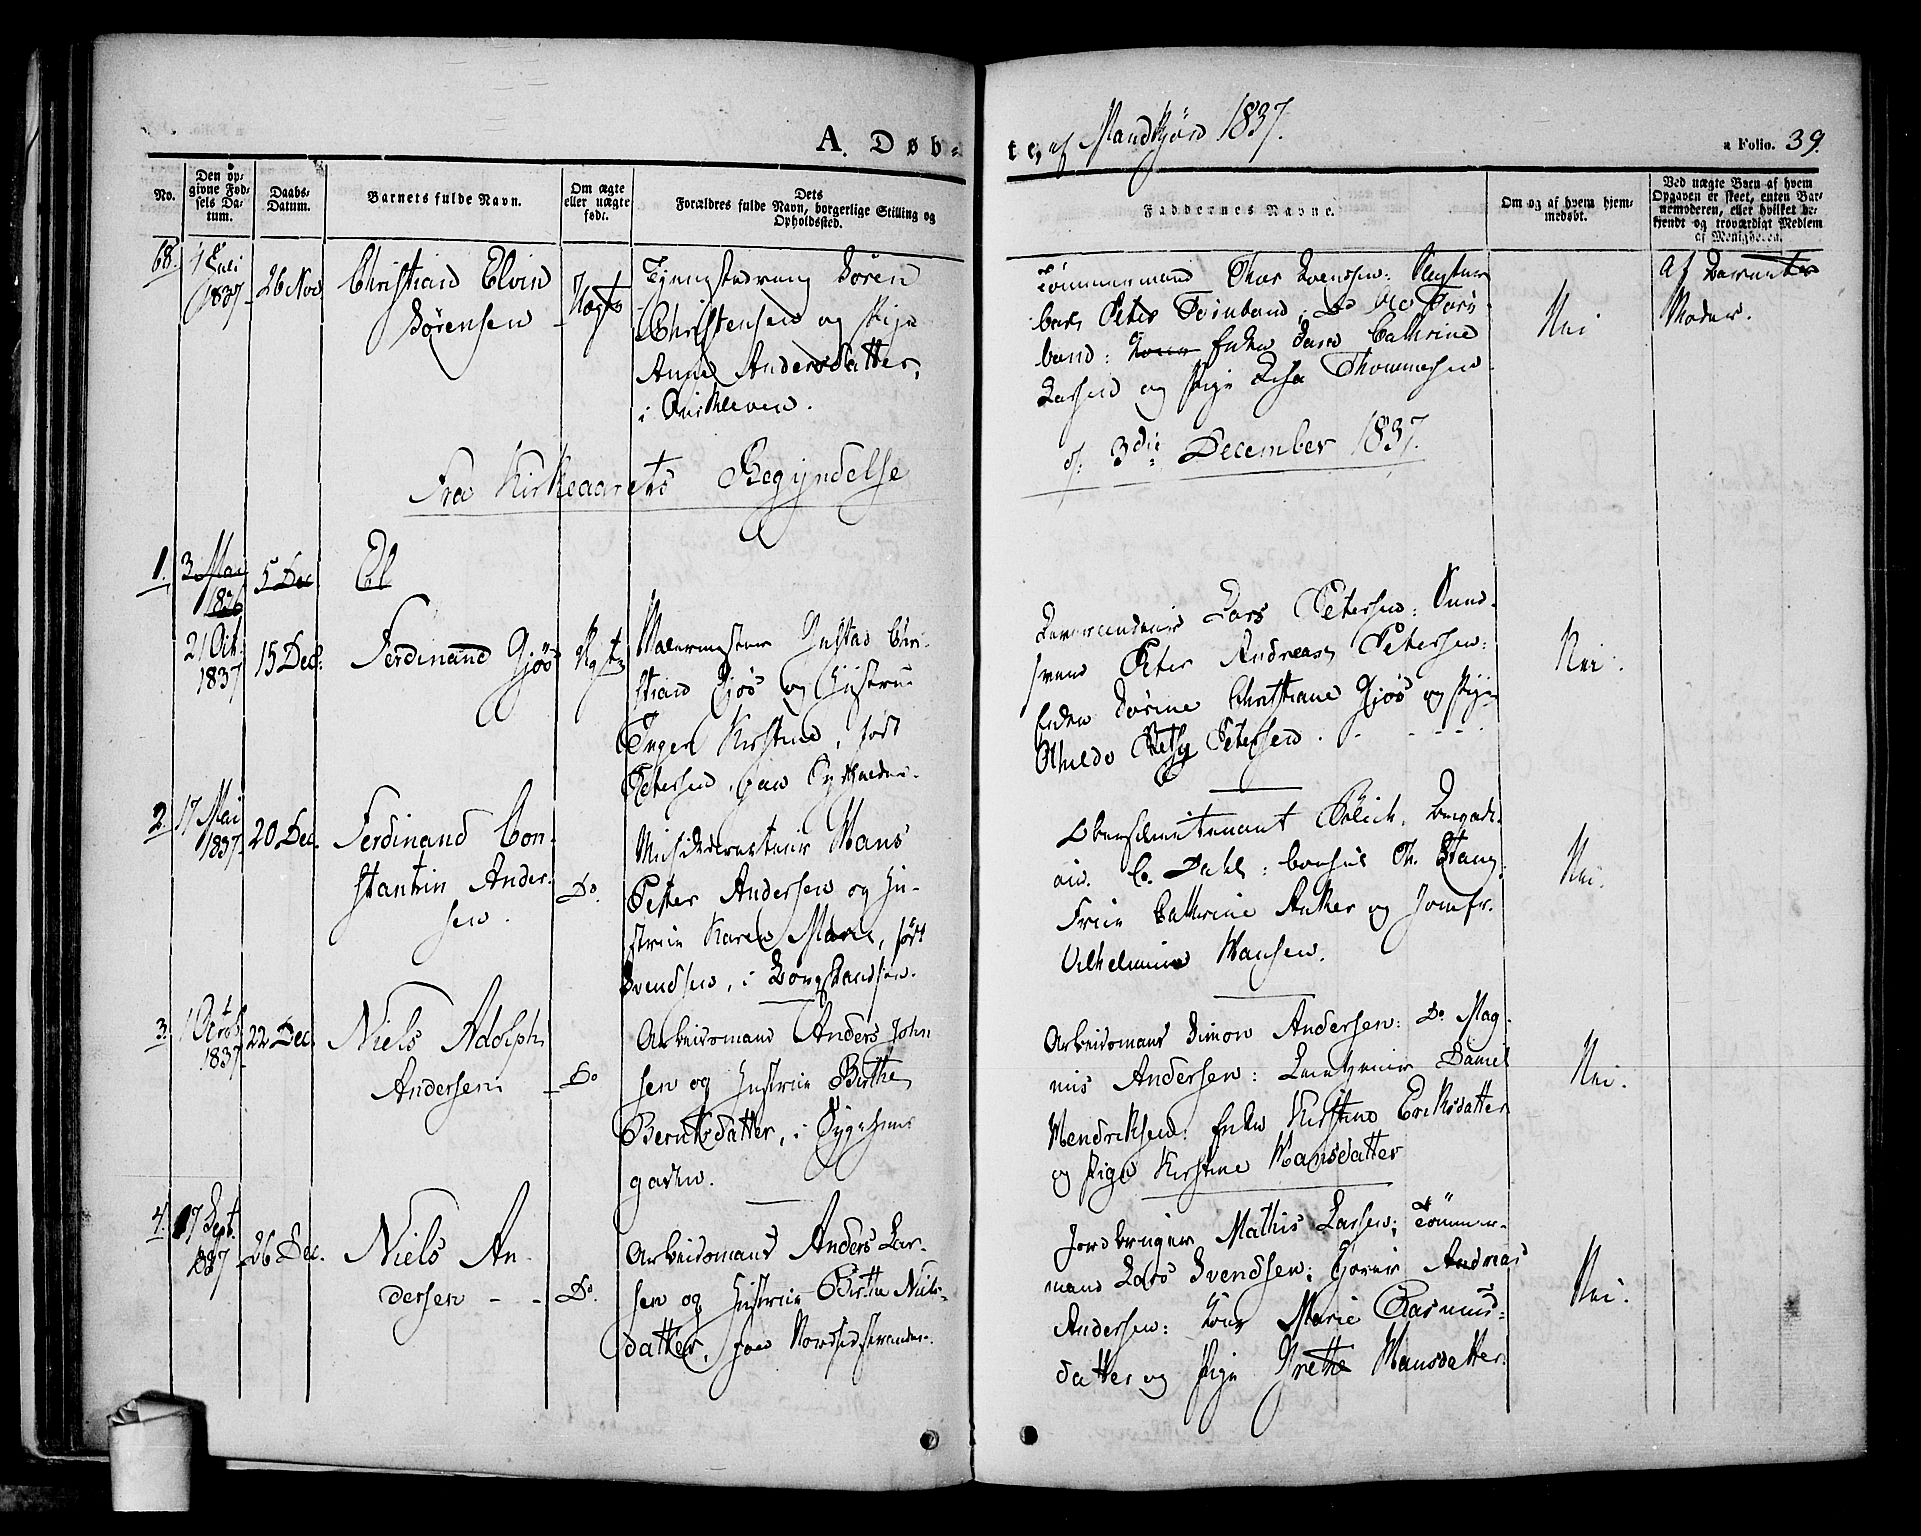 A. Døb-
te, af Mandkjøn 1837.
a Folio. 39.
No.
Den op-
givne Fød-
sels Da-
tum.
Daabs-
Datum.
Barnets fulde Navn.
Om ægte
eller uægte
født.
Dets
Forældres fulde Navn, borgerlige Stilling og
Opholdssted.
Faddernes Navne.
Om og af hvem hjem-
medøbt.
Ved uægte Barn af hvem
Opgaven er skeet, enten Bar-
nemoderen, eller hvilket be-
kjendt og troværdigt Medlem
af Menigheden.
68.
4 Juli
1837
26 Nov
Christian Elvin
Sörensen
Uægte
Sören
Christensen og Pige
Anne Andersdatter,
i
Tömmermand Thor Svensen:
Peter Tornband; Do Ole Torn
band: Kone Enke Sara Cathrine
Larsen og Pige Thommesen
Nei
af Barnets
Moder.
Fra Kirkeaarets Begyndelse
d. 3die December 1837.
1.
3 Mai
1836
5 Dec
El
21 Oct.
1837
15 Dec.
Ferdinand Gjös
Ægte
Malermester Gustav Chri-
stian Gjös og Hustrue
Inger Kirstine, född
Petersen,
Lars Petersen: Sned-
svend Peter Andreas Petersen:
Enke Sörine Christiane Gjös og Pige
Petersen.
Nei.
2.
17 Mai
1837
20 Dec.
Ferdinand Con-
stantin Ander-
sen.
Do.
Hans
Petter Andersen og Hu-
strue Karen Marie, född
Svendsen, i
Oberstlieutenant
C. Dahl: Consul Th. Stang:
Frue Cathrine Anker og Jomfr.
Vilhelmine Hansen.
Nei.
3.
1 Octob
1837
22 Dec.
Niels Adolph
Andersen
Do
Arbeidsmand Anders John
sen og Hustrue Birthe
Berntsdatter, i
gaden.
Arbeidsmand Simon Andersen: Do Mag-
nus Andersen: Daniel
Hendriksen: Enke Kirstine Eriksdatter
og Pige Kirstine Hansdatter
Nei.
4.
17 Sept.
1837
26 Dec.
Niels An
dersen
Do.
Arbeidsmand Anders Lar-
sen og Hustrue Birthe Niels-
datter, paa Nordsidstranden.
Jordbruger Mathis Larsen; Tömmer-
mand Lars Svendsen: Andreas
Andersen: Kone Marie Rasmus-
datter og Pige Grethe Hansdatter.
Nei.